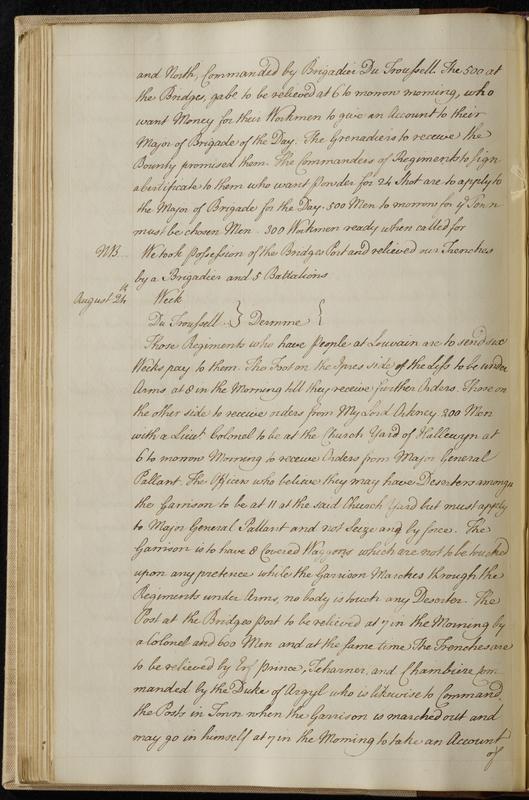 and North, Commanded by Brigadier Du Troussell. The 500 at
the Bridges, gabe to be relieved at 6 to morow morning, who
want Money for their Workmen to give an Account to their
Major of Brigade of the Day. The Grenadiers to receive the
Bounty promised them. The Commanders of Regiments to sign
a Certificate to them who want powder for 24 Shot are to apply to
the Major of Brigade for the Day. 500 Men to morrow for ye Town
must be chosen Men. 300 Workmen ready when called for
NB. We took possession of the Bridges Port and relieved our Trenches
by a Brigadier and 5 Battalions
August 24th Week
Du Troussell } Dermme {
Those Regiments who have people at Louvain are to send six
Weeks pay to them. The Foot on the Ipres side of the Liss to be under
Arms at 8 in the Morning till they receive further Orders. Those on
the other side to receive orders from My Lord Orkney. 200 Men
with a Lieut Colonel to be at the Church Yard of Hallewyn at
6 to morow Morning to receive Orders from Major General
Pallant. The Officers who believe they may have Deserters among
the Garrison to be at 11 at the said Church Yard but must apply
to Major General Pallant and not Seize any by force. The
Garrison is to have 8 Covered Waggons which are not to be touched
upon any pretence while the Garrison Marches through the
Regiments under Arms, no body is touch any Deserter. The
Post at the Bridges port to be relieved at 7 in the Morning by
a Colonel and 600 Men and at the same time The Trenches are
to be relieved by Erf prince, Tcharner, and Chambrire Com
manded by the Duke of Argyl who is likewise to Command
the Posts in Town when the Garrison is marched out and
may go in himself at 7 in the Morning to take an Account
of